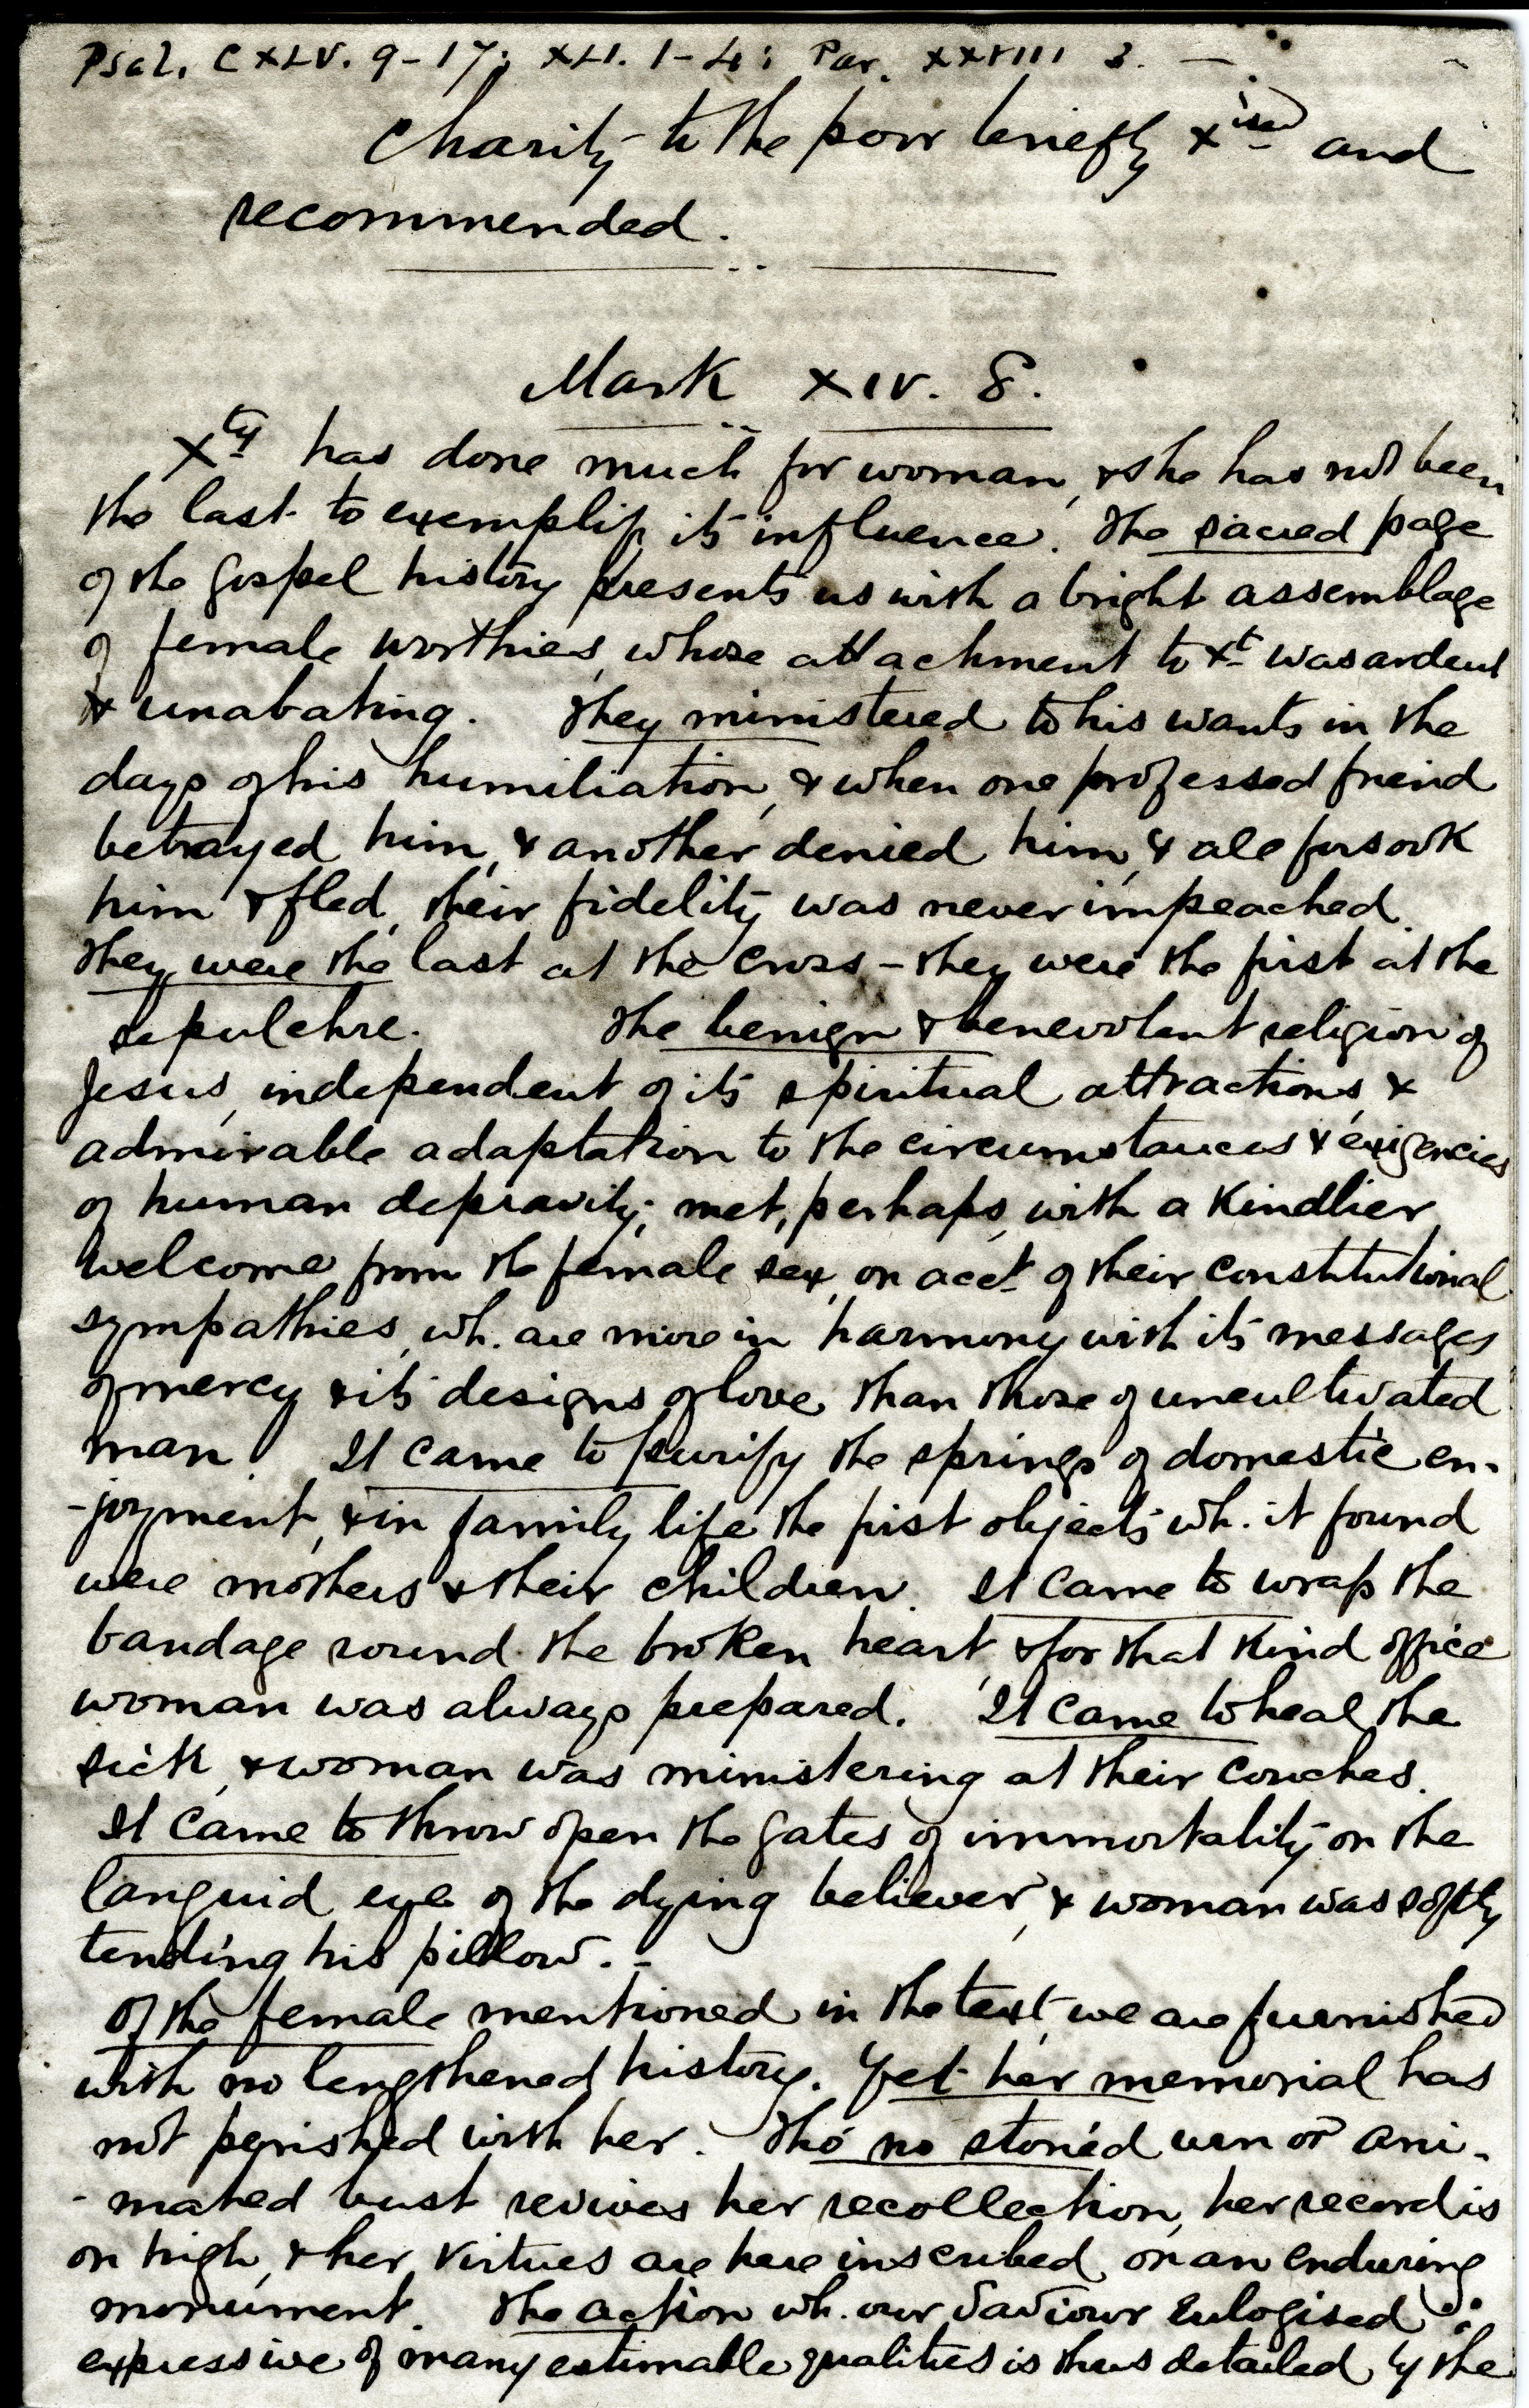 Psal. CXLV. 9-17; XLI. 1-4: Par. XXVIII 3. —
Charity to the poor briefly x^ised and
recommended.
Mark XIV. 8.
X^ty has done much for woman, & she has not been
the last to exemplify its influence. The sacred page
of the Gospel history presents us with a bright assemblage
of female worthies, whose attachment to X^t was ardent
& unabating. They ministered to his wants in the
days of his humiliation, & when one professed friend
betrayed him, & another denied him, & all forsook
him & fled, their fidelity was never impeached.
They were the last at the Cross – they were the first at the
sepulchre. The benign & benevolent religion of
Jesus, independent of its spiritual attractions, &
admirable adaptation to the circumstances & exigencies
of human depravity, met, perhaps, with a kindlier
welcome from the female sex, on acct. of their constitutional
sympathies, wh. are more in harmony with its messages
of mercy & its designs of love than those of uncultivated
man. It came to purify the springs of domestic en-
-joyment, & in family life the first objects wh. it found
were mothers & their children. It came to wrap the
bandage round the broken heart, & for that kind office
woman was always prepared. It came to heal the
sick, & woman was ministering at their couches.
It came to throw open the gates of immortality on the
languid eye of the dying believer, & woman was softly
tending his pillow. –
Of the female mentioned in the text, we are furnished
with no lengthened history. Yet her memorial has
not perished with her. Tho' no storied urn or ani-
-mated bust revives her recollection, her record is
on high, & her virtues are here inscribed on an enduring
monument. The action wh. our Saviour eulogised as
expressive of many estimable qualities is thus detailed by the